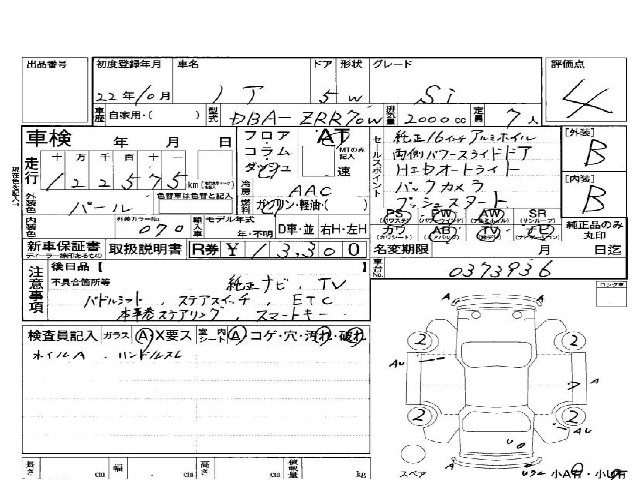 出品番号 初度登録年月 車名 ドア 形状 グレード 評価点
22年10月 ノア 5 W Si 4
車歴 自家用・( ) 型式 DBA-ZRR70W 排気量 2000cc 定員 7人
車検 年 月 日 フロア AT セールスポイント 純正16インチアルミホイル [外装]
走行 十万 万 千 百 十 一 コラム MTのみ記入 両側パワースライドドア B
122575 km ダッシュ 速 HIDオートライト
色替車は色替と記入 冷房 AAC バックカメラ [内装]
外装色 パール 燃料 ガソリン・軽油・( ) プッシュスタート B
内装色 外装カラーNo. 070 輸入車 モデル年式 年・不明 D車・並 右H・左H
PS PW AW SR
カワ AB TV ナビ
純正品のみ丸印
新車保証書 取扱説明書 R券 ¥13,300 名変期限 月 日迄
注意事項 後日品【 】 車台No. 0373936
不具合箇所等 純正ナビ、TV
パドルシフト、ステアスイッチ、ETC
本革巻ステアリング、スマートキー
検査員記入 ガラス A・X要ス 室内シート A・コゲ・穴・汚れ・破れ
ホイルA ハンドルスレ
2 2 2 2
A AU A AU A
スペア リアー 小A有・小U有
長さ cm 幅 cm 高さ cm 積載量 kg